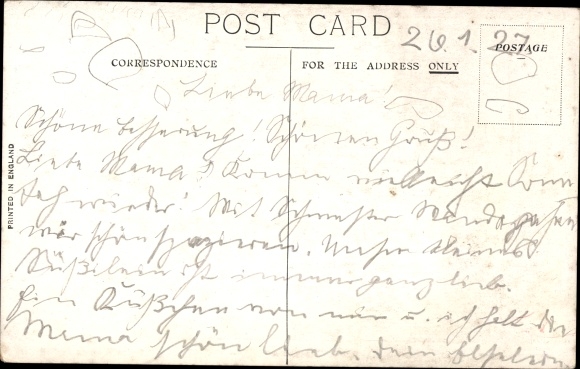 POST CARD
26.1.27.
POSTAGE
CORRESPONDENCE
FOR THE ADDRESS ONLY
PRINTED IN ENGLAND
Liebe Mama!
Schöne Besserung! Schönen Gruß!
Liebe Mama! Komm vielleicht Sonn
tag wieder! Mit Schwester Wanda gehen
wir schön spazieren. Unser kleines
Süßilein ist immer ganz lieb.
Ein Küßchen von mir u. ich hab die
Mama schön lieb. Dein